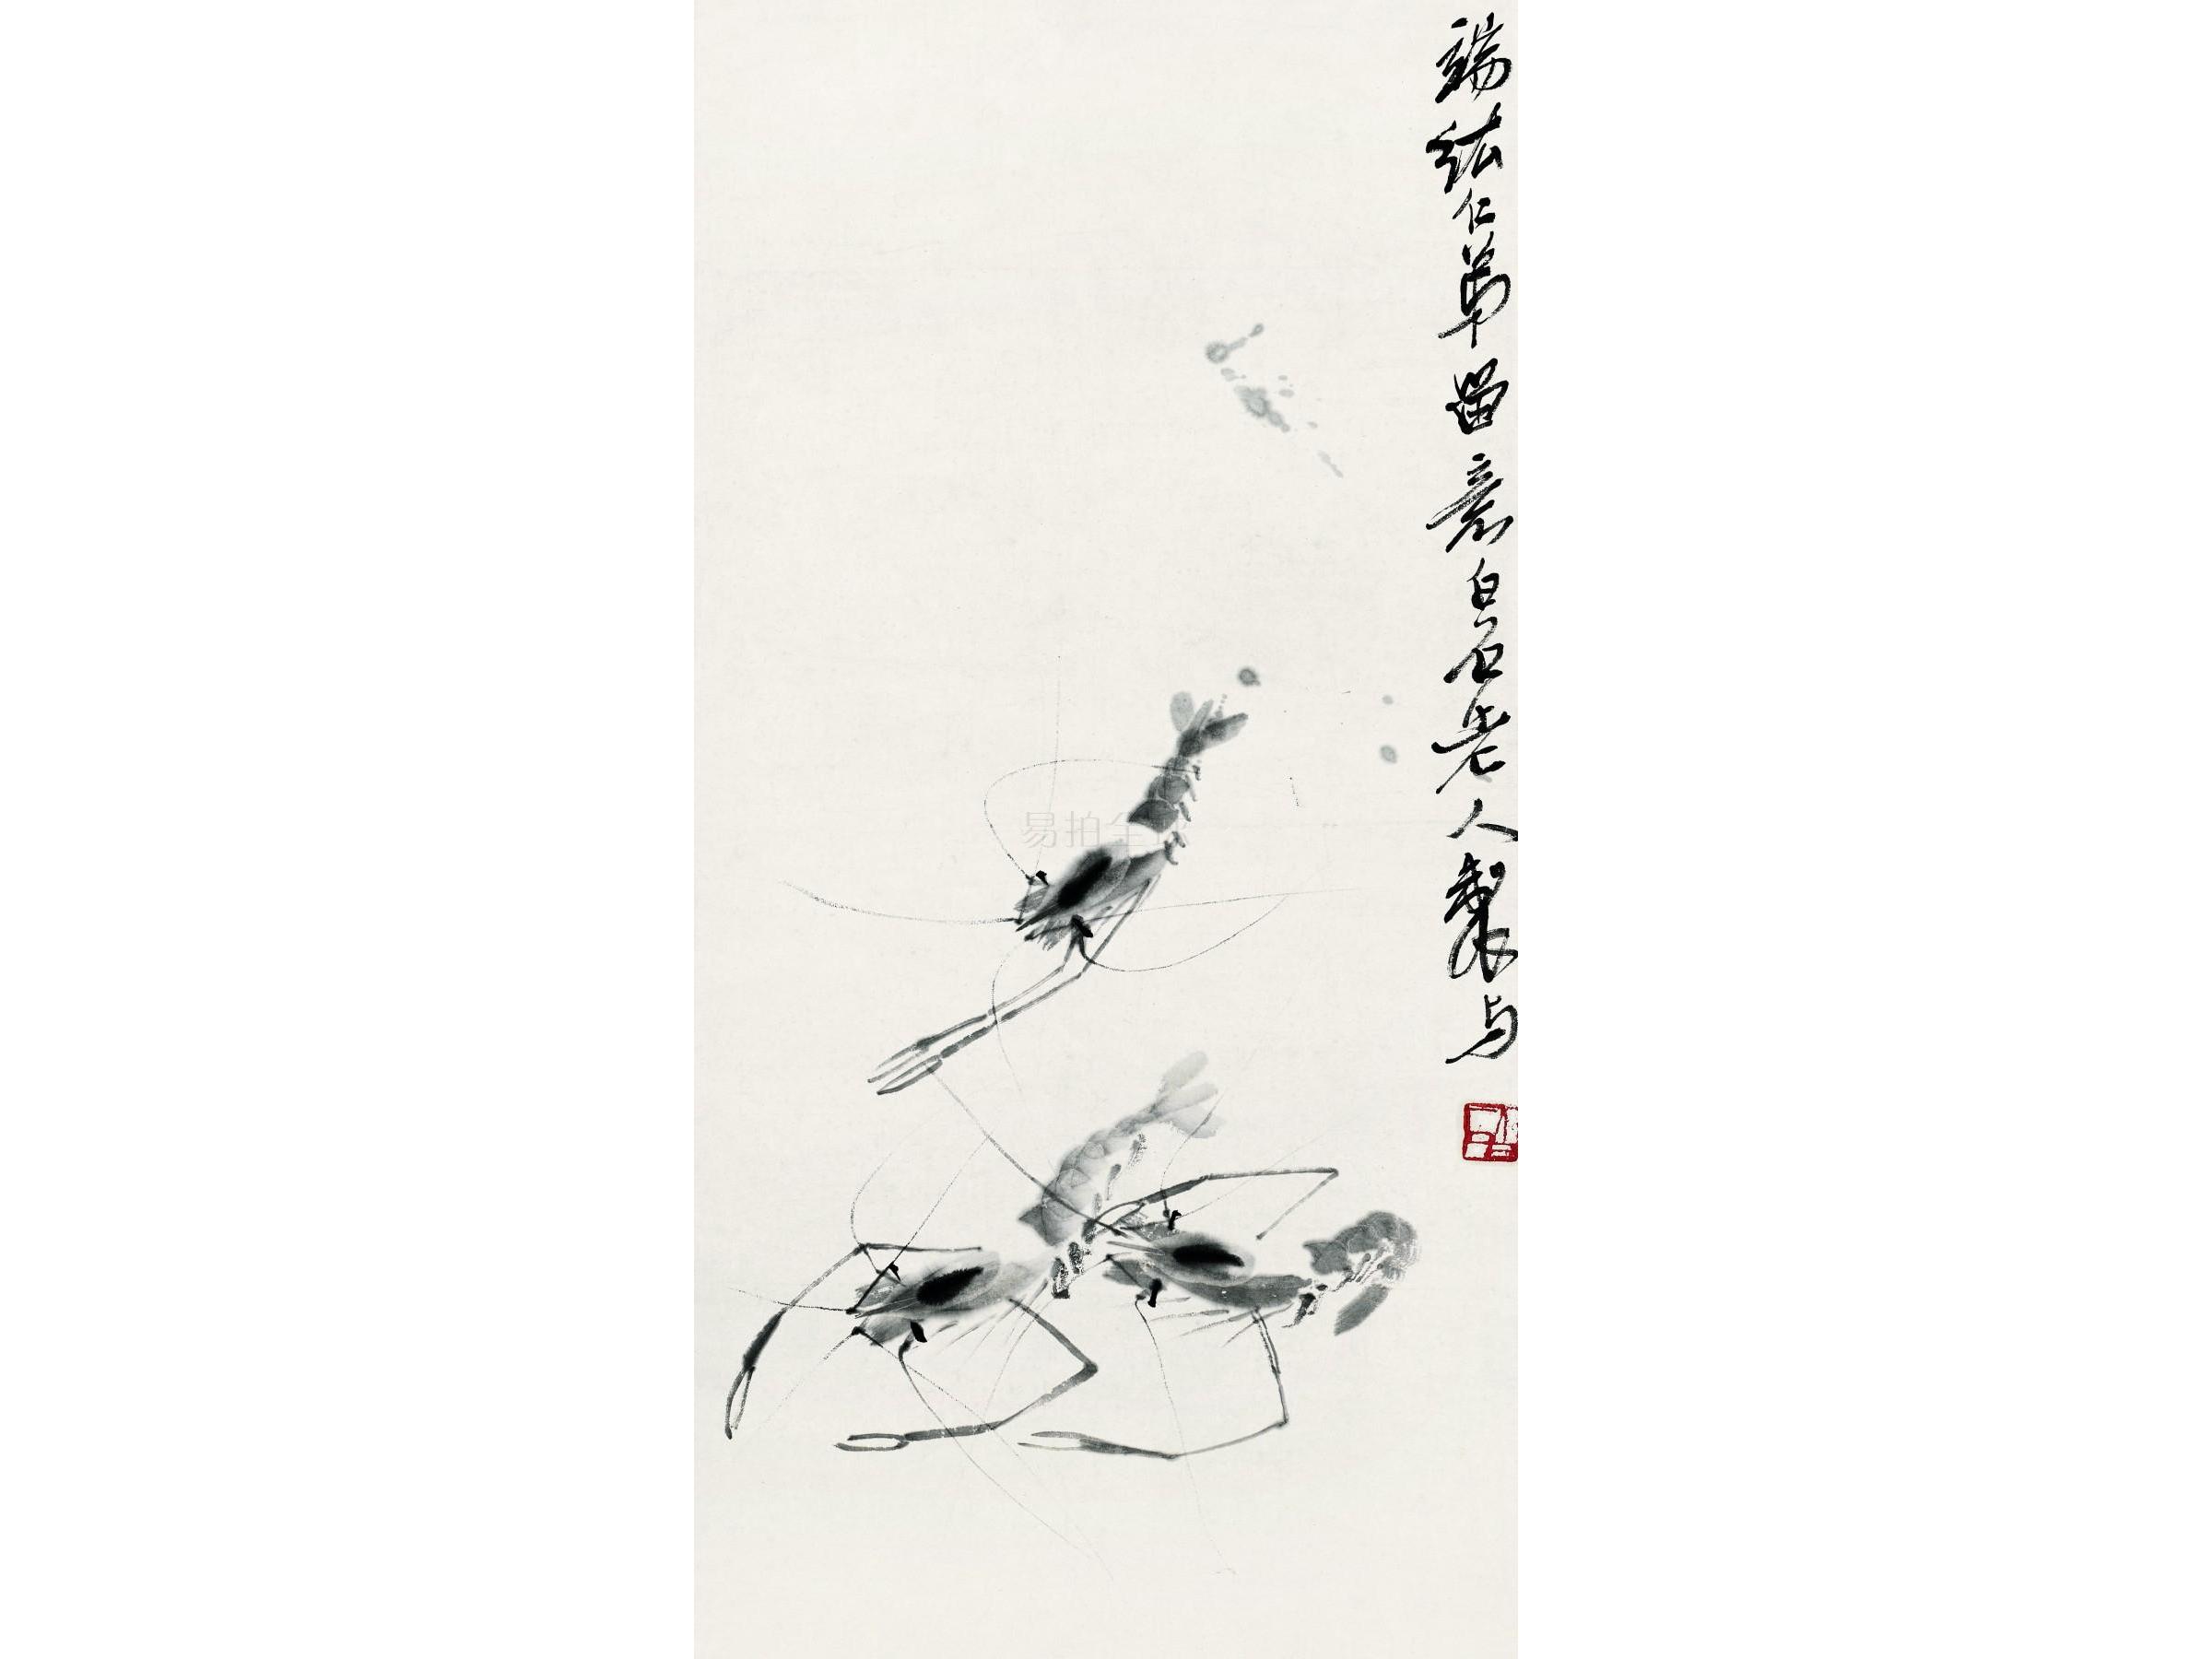 端纮仁弟留意白石老人製与
易拍全